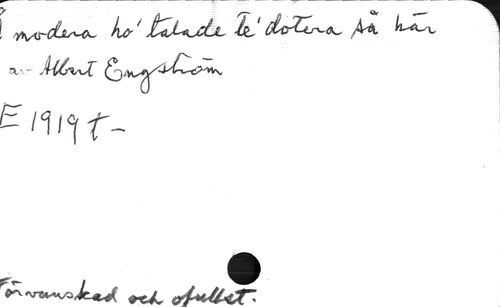 Å modera ho' talade te' dotera så här
av Albert Engström
E 1919 t-
Förvanskad och ofullst.